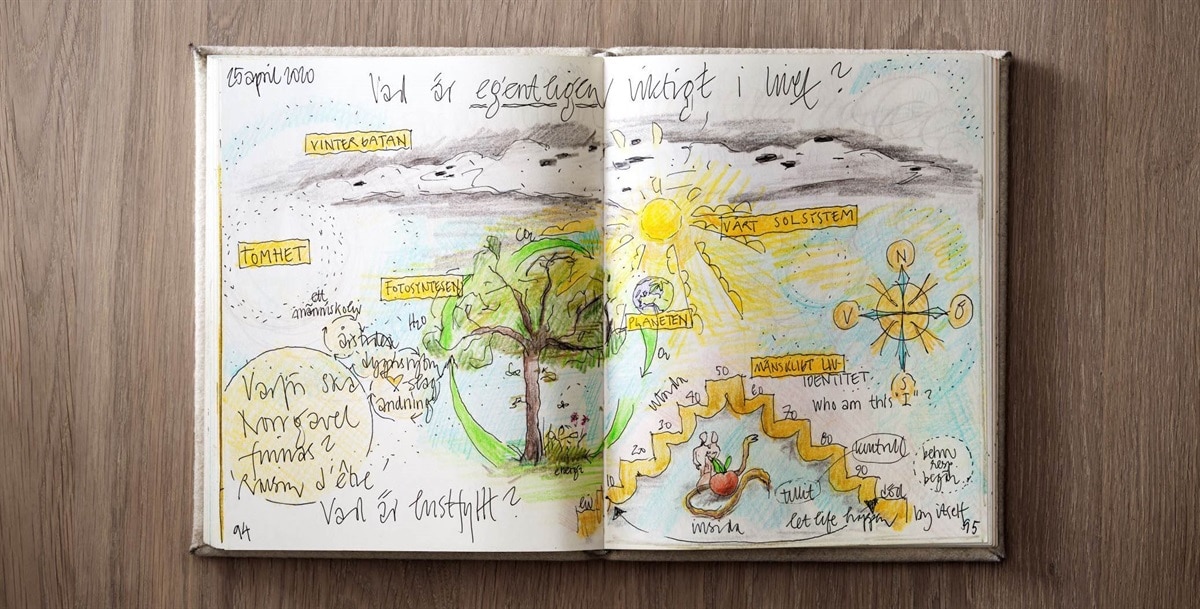 15 april 2020
Vad är egentligen viktigt i livet?
VINTERGATAN
VÅRT SOLSYSTEM
TOMHET
FOTOSYNTESEN
CO2
H2O
O2
PLANETEN
N
V
Ö
S
ett
människoliv
andning
Varför ska
Norrgavel
finnas?
d'être
Vad är lustfyllt?
energi
94
MÄNSKLIGT LIV
IDENTITET
who am this "I"?
utsida
10
20
30
40
50
60
70
80
90
död
kontroll
behov
resp
begär
tillit
insida
let life happen
by itself
95